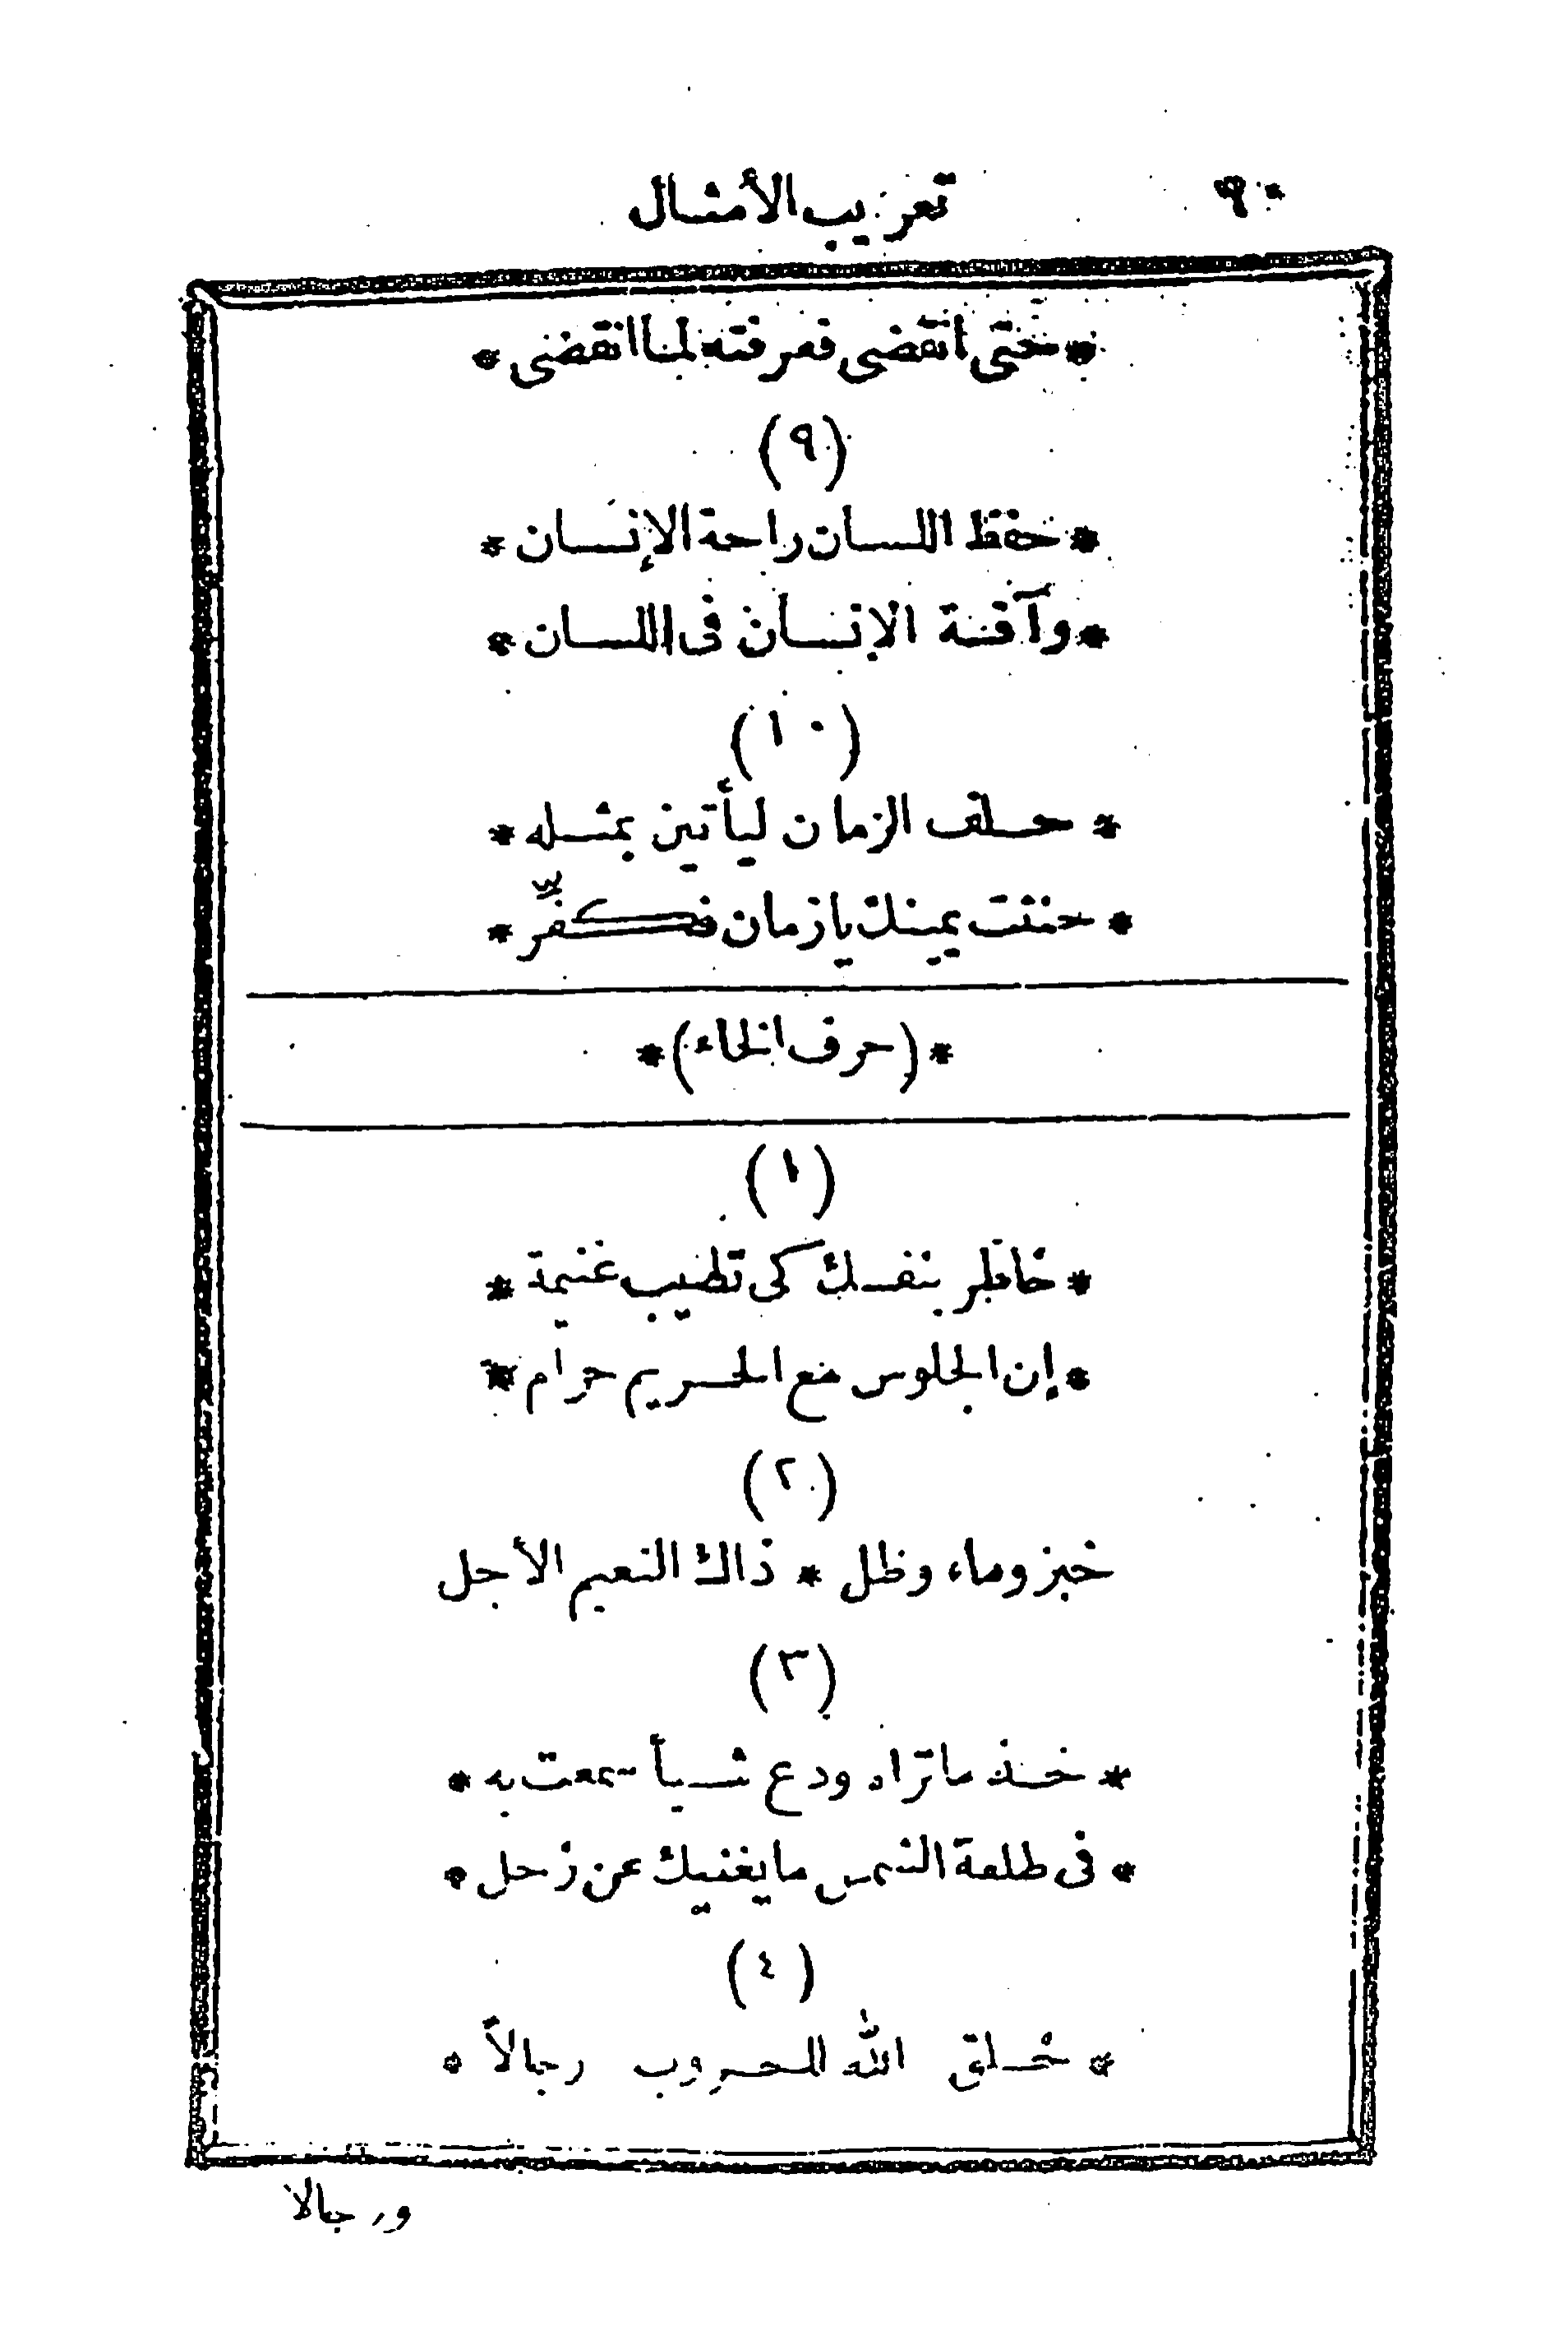 ٩٠ تعريب الأمثال
* حتى انقضى فعرفته لما انقضى *
(٩)
* حفظ اللسان راحة الإنسان *
* وآفة الإنسان فى اللسان *
(١٠)
* حلف الزمان ليأتين بمثله *
* حنثت يمينك يا زمان فكفّر *
* (حرف الخاء) *
(١)
* خاطر بنفسك كى تطيب غنيمة *
* إن الجلوس مع الحريم حرام *
(٢)
خبز وماء وظل * ذاك النعيم الأجل
(٣)
* خذ ما تراه ودع شيأ سمعت به *
* فى طلعة الشمس ما يغنيك عن زحل *
(٤)
* خلق الله للحروب رجالاً *
ورجالا